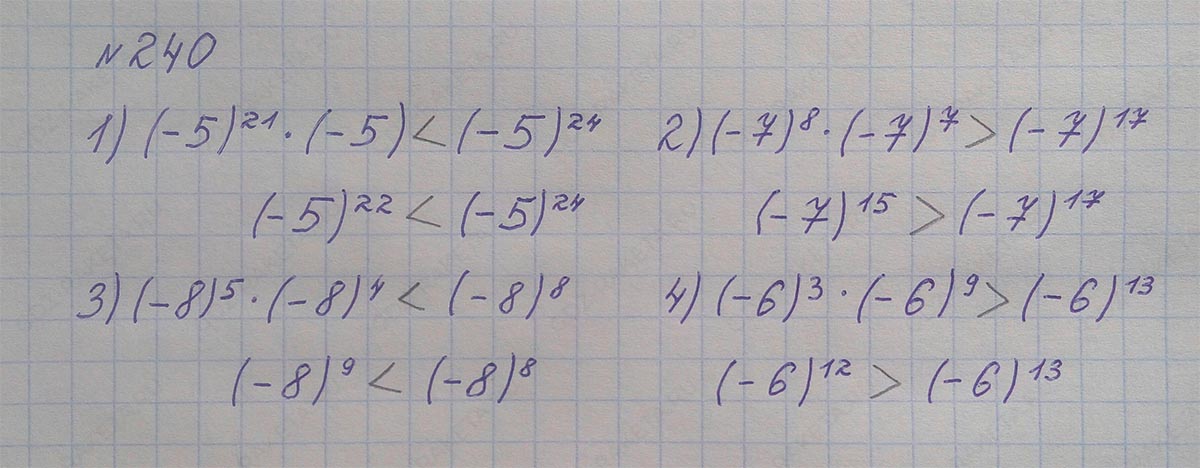 №240
1) (-5)²¹·(-5)<(-5)²⁴ 2) (-7)⁸·(-7)⁷>(-7)¹⁷
(-5)²²<(-5)²⁴ (-7)¹⁵>(-7)¹⁷
3) (-8)⁵·(-8)⁴<(-8)⁸ 4) (-6)³·(-6)⁹>(-6)¹³
(-8)⁹<(-8)⁸ (-6)¹²>(-6)¹³